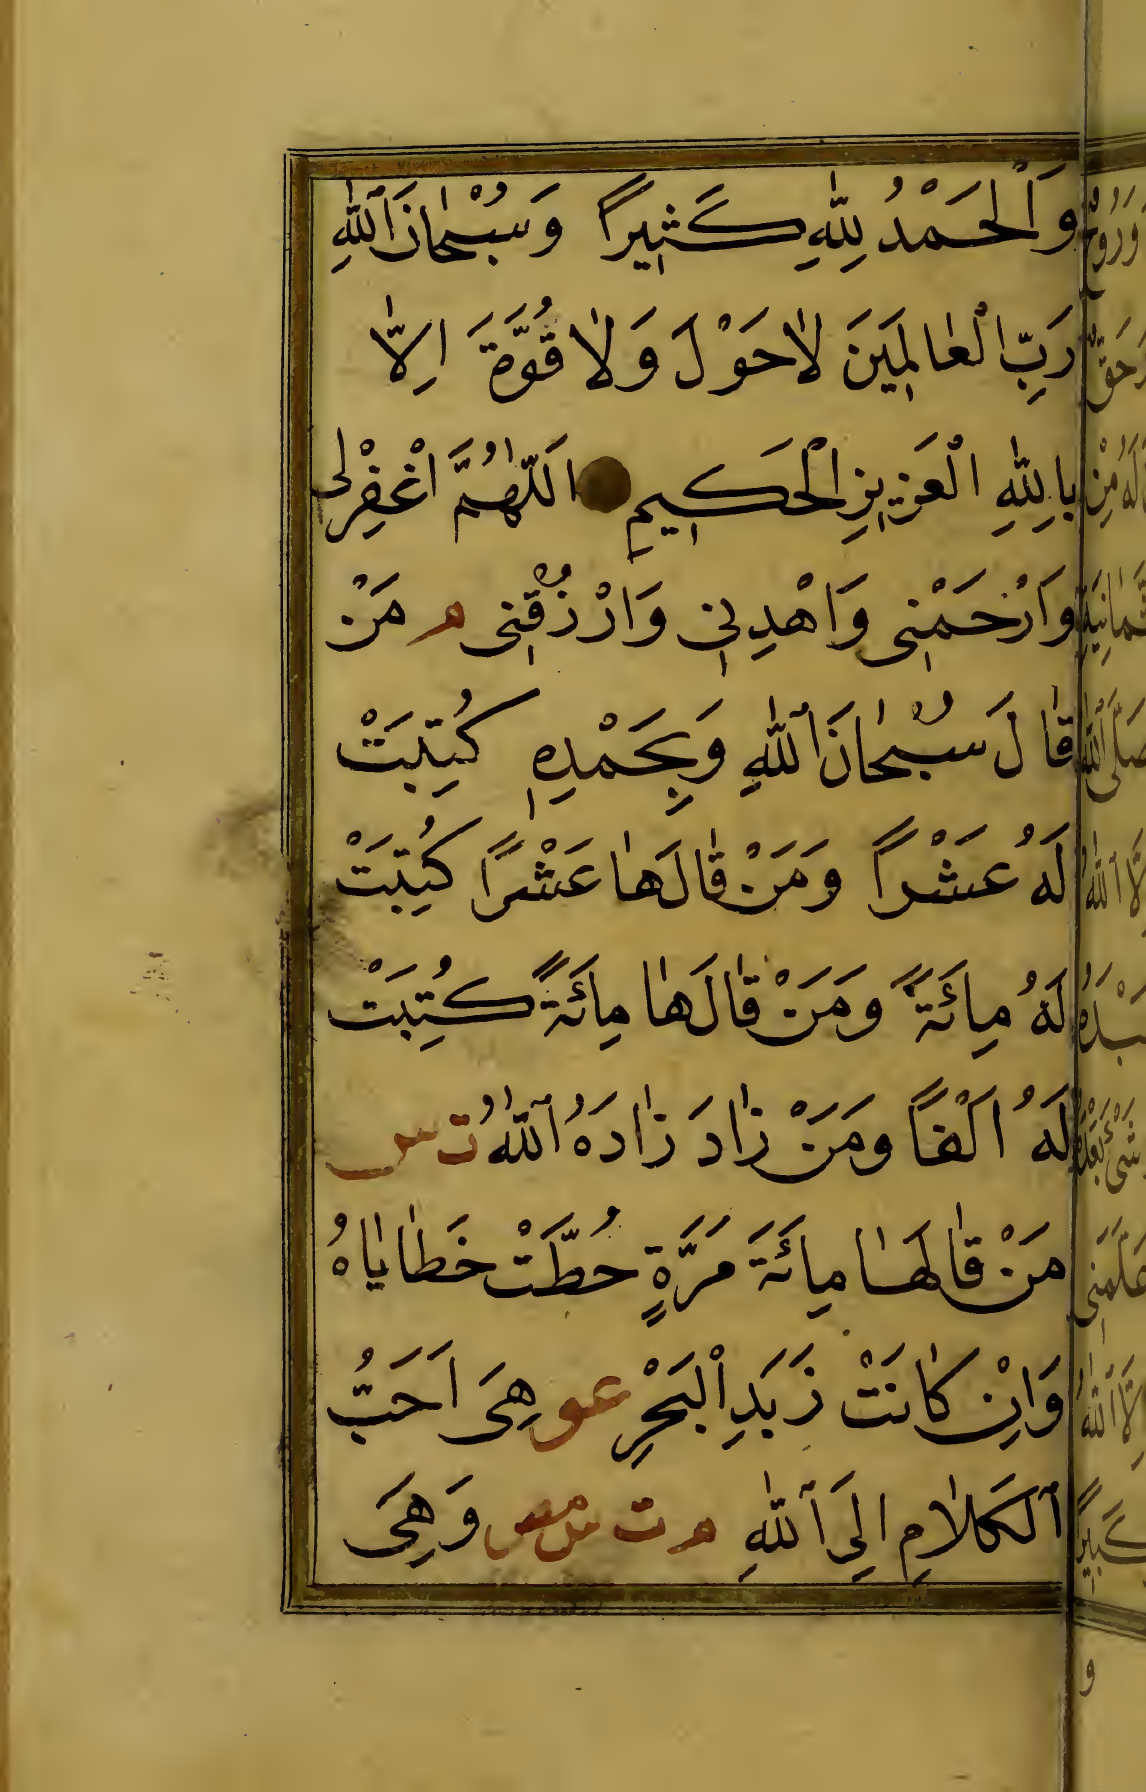 وَالْحَمْدُ لِلّٰهِ كَثِيرًا وَسُبْحَانَ اللّٰهِ
رَبِّ الْعَالَمِينَ لَا حَوْلَ وَلَا قُوَّةَ اِلَّا
بِاللّٰهِ الْعَزِيزِ الْحَكِيمِ اَللّٰهُمَّ اغْفِرْ لِى
وَارْحَمْنِى وَاهْدِنِى وَارْزُقْنِى م مَنْ
قَالَ سُبْحَانَ اللّٰهِ وَبِحَمْدِهِ كُتِبَتْ
لَهُ عَشْرًا وَمَنْ قَالَهَا عَشْرًا كُتِبَتْ
لَهُ مِائَةً وَمَنْ قَالَهَا مِائَةً كُتِبَتْ
لَهُ اَلْفًا وَمَنْ زَادَ زَادَهُ اللّٰهُ ت س
مَنْ قَالَهَا مِائَةَ مَرَّةٍ حُطَّتْ خَطَايَاهُ
وَاِنْ كَانَتْ زَبَدِ الْبَحْرِ عو هِىَ اَحَبُّ
الْكَلَامِ اِلَى اللّٰهِ م ت س مص وَهِىَ